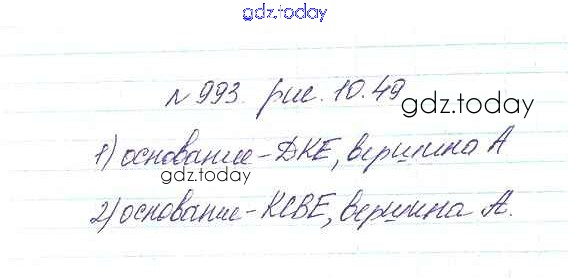 gdz.today
№993. рис. 10.49
gdz.today
1) основание - ДКЕ, вершина А
gdz.today
2) основание - КСВЕ, вершина А.